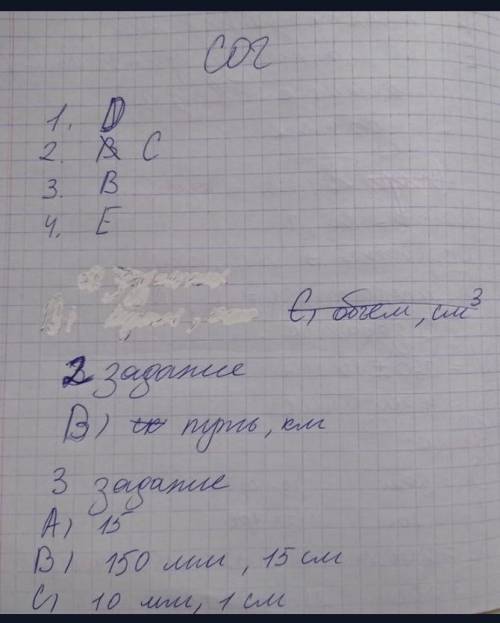 СОЧ
1. D
2. C
3. B
4. E
C) объем, см³
2 задание
B) путь, км
3 задание
A) 15
B) 150 мм, 15 см
C) 10 мм, 1 см